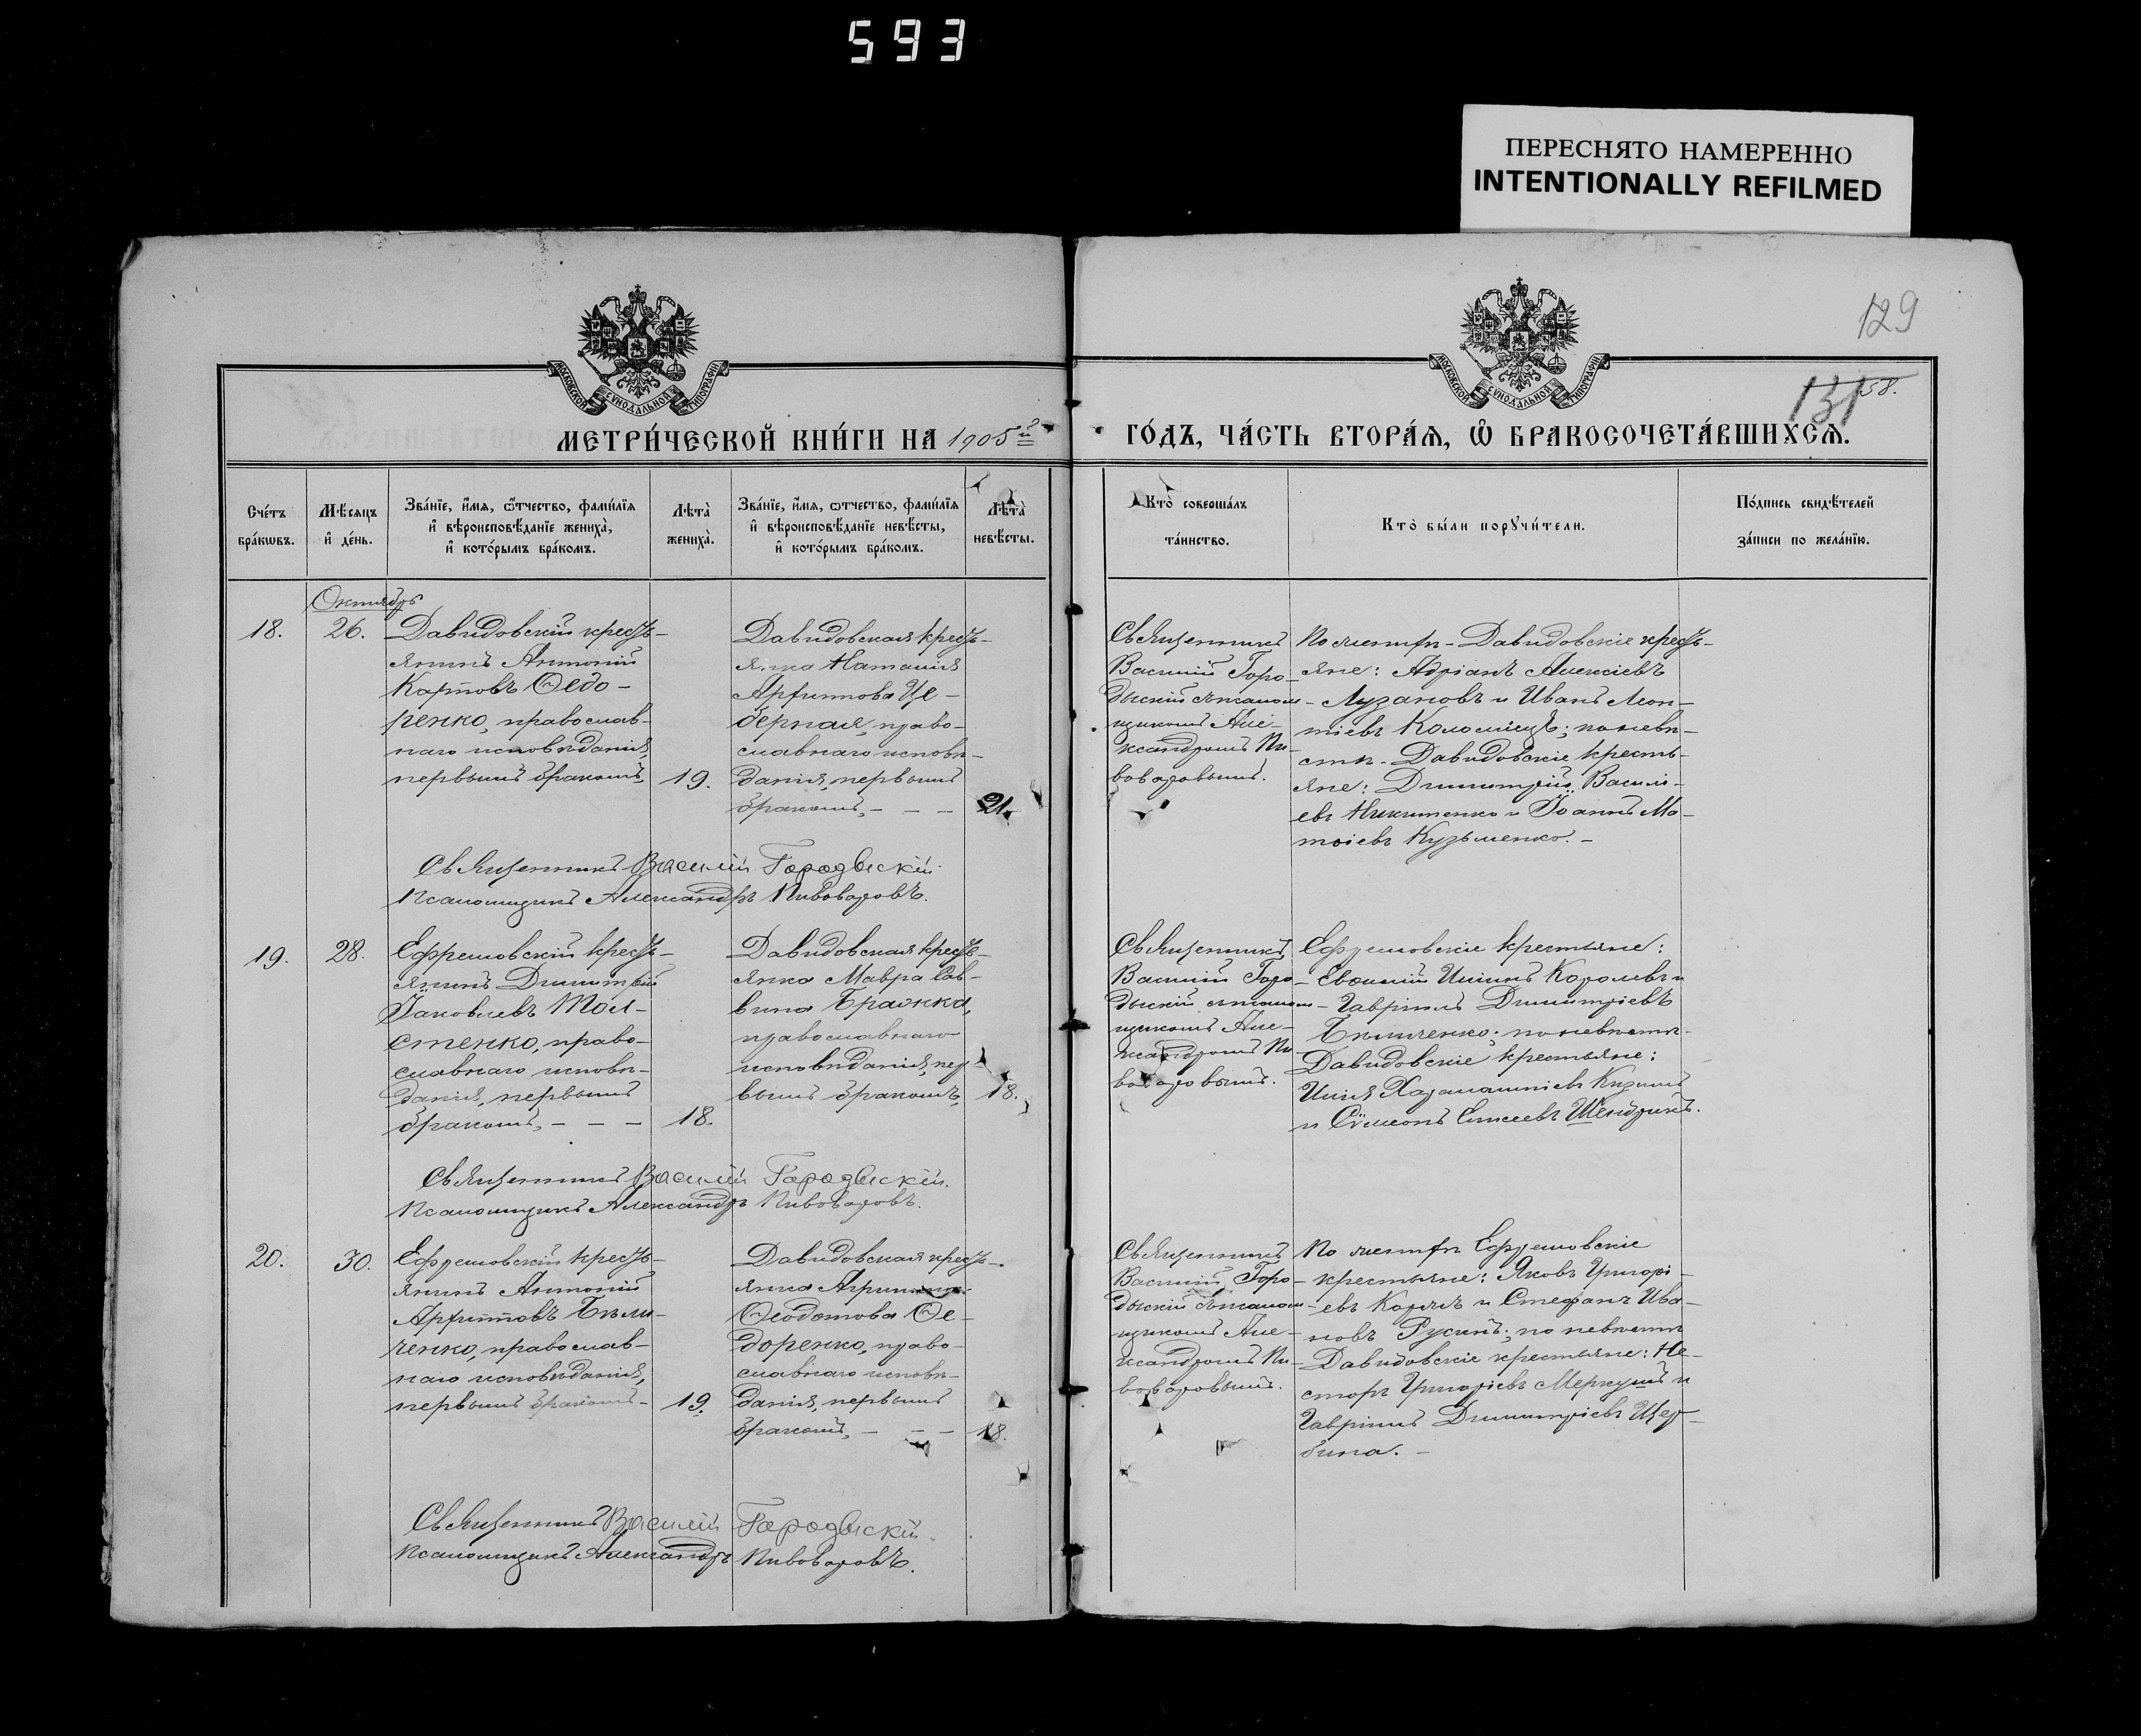 593
ПЕРЕСНЯТО НАМЕРЕННО
INTENTIONALLY REFILMED
129
131
58.
МОСКОВСКОЙ СѴНОДАЛЬНОЙ ТИПОГРАФІИ
МОСКОВСКОЙ СѴНОДАЛЬНОЙ ТИПОГРАФІИ
МЕТРИ́ЧЕСКОЙ КНИ́ГИ НА 1905й
ГО́ДЪ, ЧА́СТЬ ВТОРА́Ѧ, Ѽ БРАКОСОЧЕТА́ВШИХСѦ.
Сче́тъ
бра́кѡвъ.
Мѣ́сяцъ
и҆ де́нь.
Зва́нїе, и҆́мя, ѻ҆́тчество, фами́лїя
и҆ вѣроисповѣ́данїе жениха̀,
и҆ кото́рымъ бра́комъ.
Лѣта̀
жениха̀.
Зва́нїе, и҆́мя, ѻ҆тчество, фами́лїя
и҆ вѣроисповѣ́данїе невѣ́сты,
и҆ кото́рымъ бра́комъ.
Лѣта̀
невѣ́сты.
Кто̀ соверша́лъ
та́инство.
Кто̀ бы́ли порꙋчи́тели.
По́дпись свидѣ́телей
за́писи по жела́нїю.
Октябрь
18.
26.
Давидовскій кресть-
янинъ Антоній
Карповъ Ѳедо-
ренко, православ-
наго исповѣданія,
первымъ бракомъ,
19.
Давидовская кресть-
янка Наталія
Архиппова Це-
берная, право-
славнаго исповѣ-
данія, первымъ
бракомъ, - - -
21.
Священникъ
Василій Горо-
дыскій съ псалом-
щикомъ Але-
ксандромъ Пи-
воваровымъ.
По жениху - Давидовскіе кресть-
яне: Адріанъ Алексіевъ
Лузановъ и Иванъ Леон-
тіевъ Коломіецъ; по невѣ-
стѣ - Давидовскіе кресть-
яне: Димитрій Василі-
евъ Никитенко и Іоаннъ Ма-
тѳіевъ Кузьменко. -
Священникъ Василій Городыскій
Псаломщикъ Александръ Пивоваровъ.
19.
28.
Ефремовскій кресть-
янинъ Димитрій
Іаковлевъ Тол-
стенко, право-
славнаго исповѣ-
данія, первымъ
бракомъ, - - -
18.
Давидовская кресть-
янка Мавра Сав-
вина Бражка,
православнаго
исповѣданія, пер-
вымъ бракомъ,
18.
Священникъ
Василій Горо-
дыскій съ псалом-
щикомъ Але-
ксандромъ Пи-
воваровымъ.
Ефремовскіе крестьяне:
Евѳимій Иліинъ Королевъ и
Гавріилъ Димитріевъ
Бѣличенко; по невѣстѣ
Давидовскіе крестьяне:
Илія Харалампіевъ Кизимъ
и Сѵмеонъ Елисеевъ Шендрикъ.
Священникъ Василій Городыскій.
Псаломщикъ Александръ Пивоваровъ.
20.
30.
Ефремовскій кресть-
янинъ Антоній
Архипповъ Бѣли-
ченко, православ-
наго исповѣданія,
первымъ бракомъ -
19.
Давидовская кресть-
янка
Ѳеодотова Ѳе-
доренко, право-
славнаго исповѣ-
данія, первымъ
бракомъ, - - -
18.
Священникъ
Василій Горо-
дыскій съ псалом-
щикомъ Але-
ксандромъ Пи-
воваровымъ.
По жениху Ефремовскіе
крестьяне: Яковъ Григорі-
евъ и Стефанъ Ива-
новъ Русинъ; по невѣстѣ
Давидовскіе крестьяне: Не-
сторъ Григоріевъ Меркушъ и
Гавріилъ Димитріевъ Щер-
бина. -
Священникъ Василій Городыскій
Псаломщикъ Александръ Пивоваровъ.